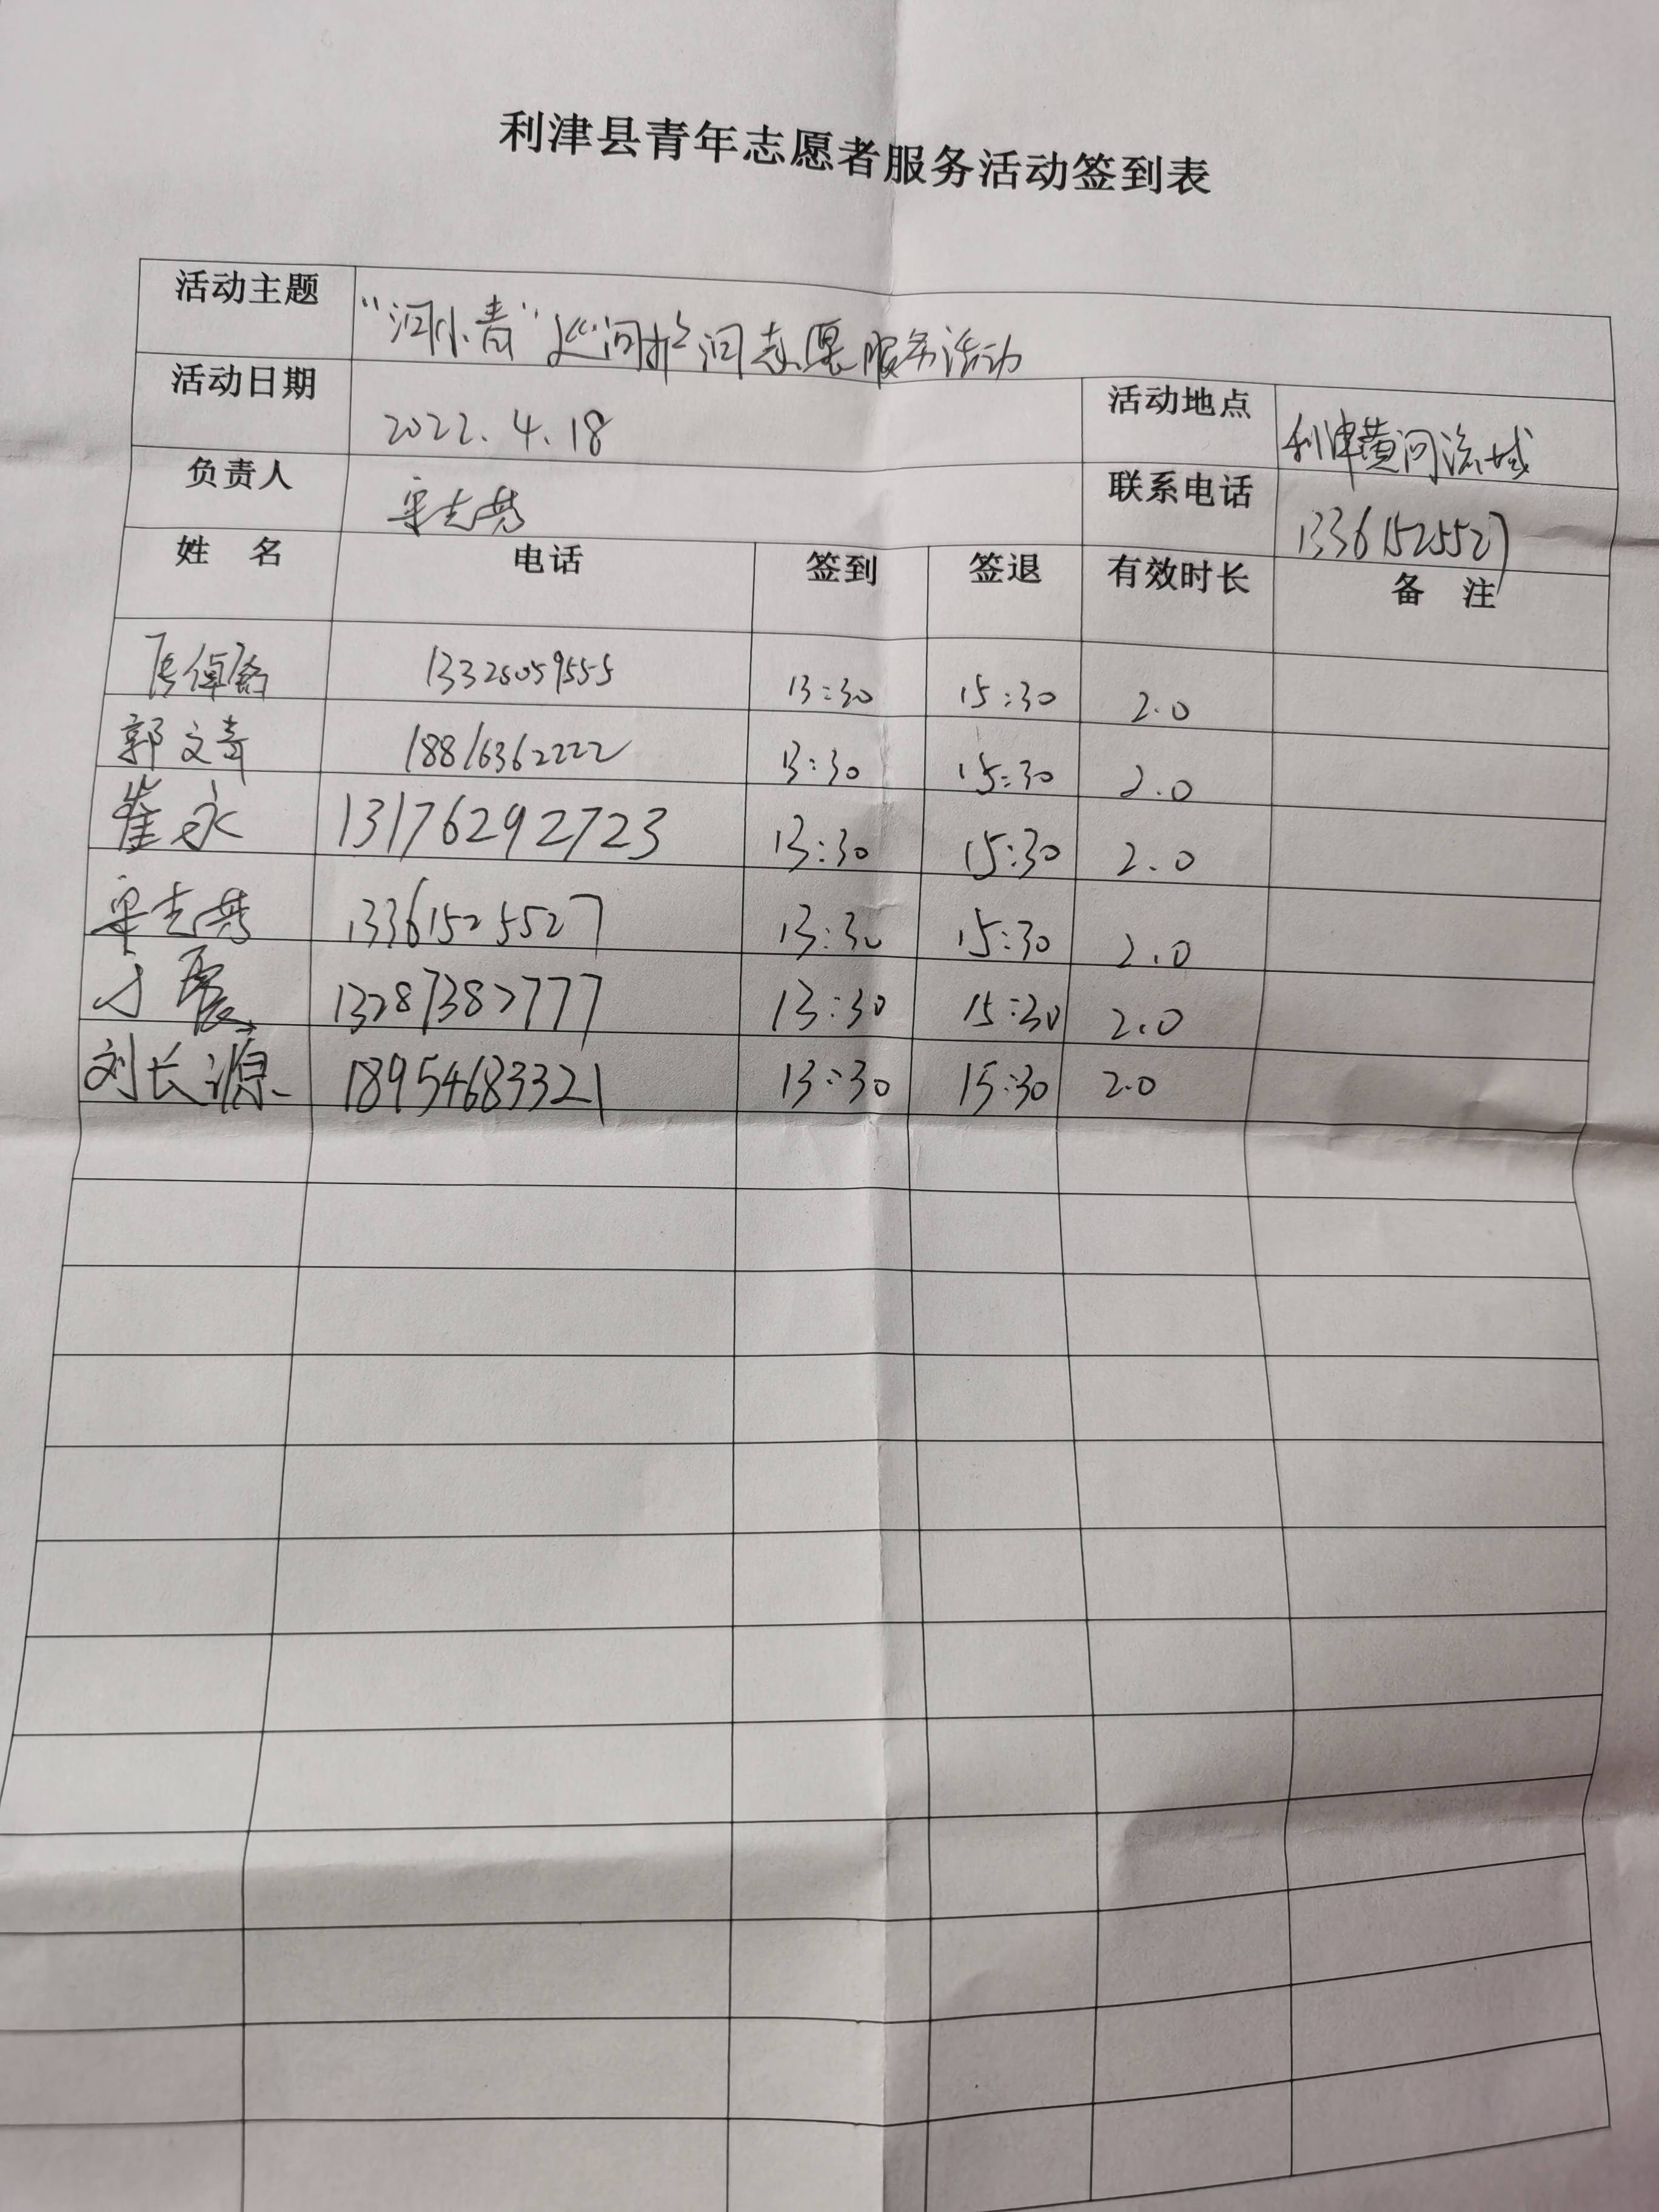 利津县青年志愿者服务活动签到表
活动主题 “河小青”巡河护河志愿服务活动
活动日期 2022.4.18 活动地点 利津黄河流域
负责人 联系电话 13361525527
姓 名 电话 签到 签退 有效时长 备 注
13325059555 13:30 15:30 2.0
郭文奇 18816362222 13:30 15:30 2.0
崔永 13176292723 13:30 15:30 2.0
13361525527 13:30 15:30 2.0
13287382777 13:30 15:30 2.0
刘长源 18954683321 13:30 15:30 2.0